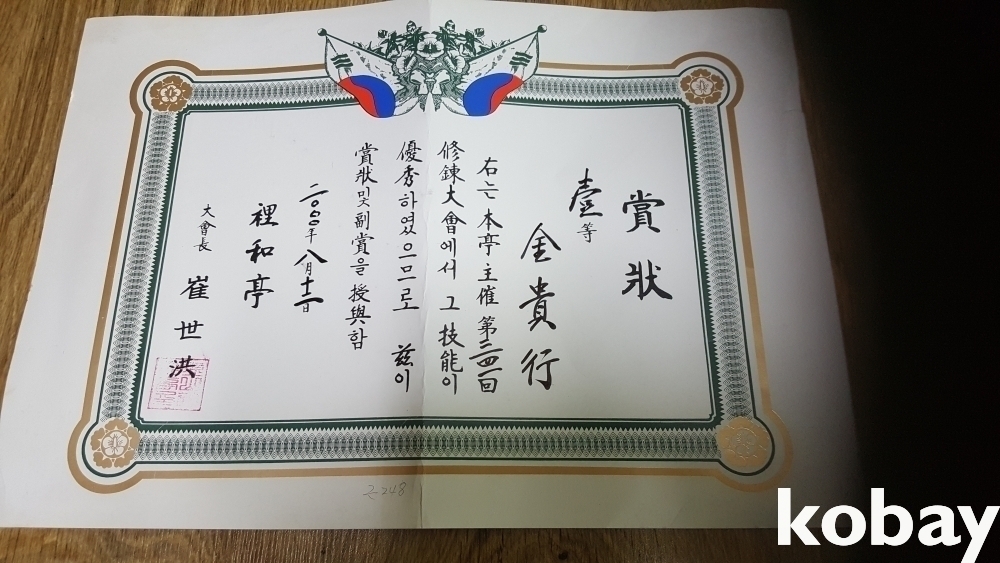 賞狀
壹等
金貴行
右는 本亭主催 第 回
修鍊大會에서 그 技能이
優秀하였으므로 玆이
賞狀 및 副賞을 授與함
年 八月 日
裡和亭
大會長 崔世洪
248
kobay